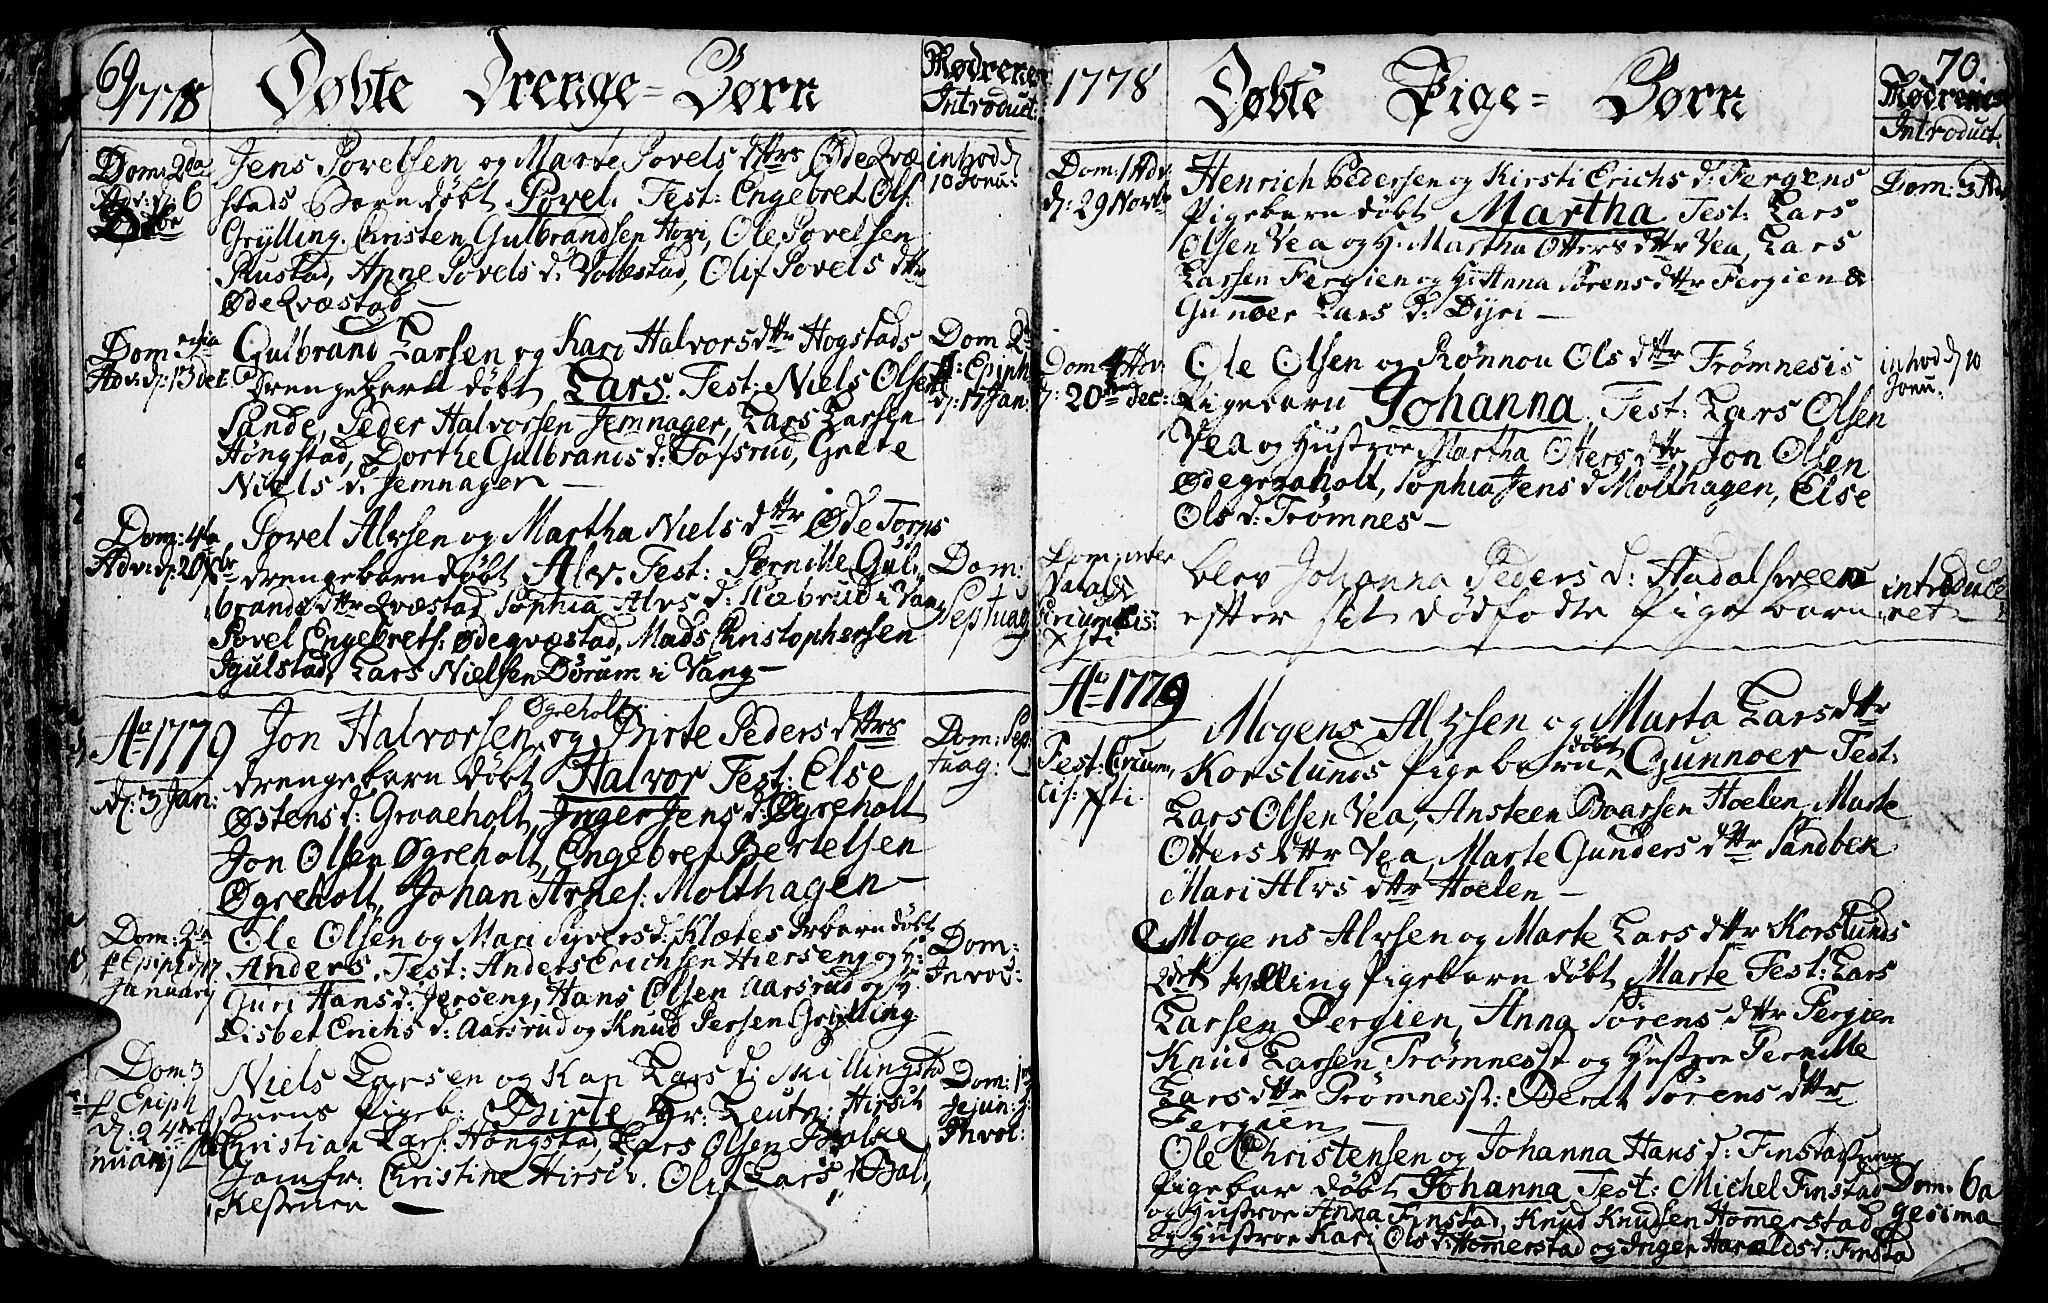 69
1778
Døbte Drenge-Børn
Mødrenes
Introduct:
Dom: 2da
Adv: d: 6
Xbr
Jens Povelsen og Marte Povels dttrs Ødeqvæ
stads Barn døbt Povel. Test: Engebret Ols:
Grylling. Christen Gulbrandsen Hovi, Ole Povelsen
Rustad, Anne Povels d: Volkstad, Olif Povels dttr
Ødeqvæstad —
inhod d
10 Janu:
Dom 3tia
Adv: d: 13 det
Gulbrand Larsen og Kari Halvors dttr Hogstads
Drengebarn døbt Lars. Test: Niels Olsen
Sande, Peder Halvorsen Jemnager, Lars Larsen
Høngstad, Dorthe Gulbrands d: Tofsrud, Grete
Niels d: Jemnager —
Dom 2d
p: Epiph
d: 17 Jan:
Dom: 4ta
Adv: d: 20 Xbr
Povel Alvsen og Martha Niels dttr Øde Torps
drengebarn døbt Alv. Test: Pernille Gul:
brands dttr Qvæstad, Sophia Alvs d: Næbrud i Vang
Povel Engebrets: Ødeqvæstad, Mads Christophersen
Igulstad, Lars Nielsen Dørum i Vang —
Dom:
Septuag
Ao 1779
d: 3 Jan:
Øgreholt
Jon Halvorsen og Birte Peders dttrs
drengebarn døbt Halvor Test: Else
Østens d: Graaeholt, Inger Jens d: Øgreholt
Jon Olsen Øgreholt, Engebret Bertelsen
Øgreholt, Johan Arnes: Molthagen —
Dom: Sep
tuag:
Dom: 2da
p Epiph d 17
January
Ole Olsen og Mari Syvers d: Klætes drbarn døbt
Anders. Test: Anders Erichsen Hierseng og H:
Guri Hans d: Jerseng, Hans Olsen Aarsrud og H.
Lisbet Erichs d: Aarsrud og Knud Persen Grylling
Dom:
Invoc:
Dom 3
p Epiph
d: 24 Ja
nuarij
Niels Larsen og Kari Lars d: Skillingstad
Pigeb: Birte Hr: Leutn: Hirsch
Christian Lars: Høngstad, Lars Olsen Balke
Jomfr: Christine Hirsch. Olif Lars d Bal,,
Kestuen —
Dom: 1
Jejun:
Invoc:
1778
Døbte Pige-Børn
70.
Mødrenes
Introduct.
Dom: 1 Adv:
d: 29 Novbr
Henrich Pedersen og Kirsti Erichs d: Fergens
Pigebarn døbt Martha Test: Lars
Olsen Vea og H: Martha Otters dttr Vea, Lars
Larsen Fergien og H: Anna Sørens dttr Fergien &
Gunoer Lars d: Dyri —
Dom: 3 Adv
Dom 4 Adv:
d: 20 Dec:
Ole Olsen og Rønnou Ols dttr Trømnesis
Pigebarn Johanna. Test: Lars Olsen
Vea og Hustroe Martha Otters dttr, Jon Olsen
Ødegraaholt, Sophia Jens d Molthagen, Else
Ols d: Trømnes —
inhod d 10
Janu.
Dom: inter
Circumcis:
Xsti
blev Johanna Peders d: Aadalsween
efter sit dødfødte Pigebarn
introduce
ret —
Ao 1779
Fest: Circum,
cis: Xsti
Mogens Alvsen og Marta Lars dttr
Korslunds Pigebarn døbt Gunnoer Test:
Lars Olsen Vea, Ansteen Baarsen Hoelen, Marte
Otters dttr Vea, Marte Gunders dttr Sandbek
Mari Alvs dttr Hoelen —
Mogens Alvsen og Marte Lars dttr Korslunds
tvilling Pigebarn døbt Marte Test: Lars
Larsen Fergien, Anna Sørens dttr Fergien
Knud Larsen Trømnesst og Hustroe Pernille
Lars dttr Trømnesst: Berit Sørens dttr
Fergien —
Ole Christensen og Johanna Hans d: Finstad
Pigebar døbt Johanna Test: Michel Finstad
og Hustroe Anna Finstad, Knud Knudsen Homerstad
og Hustroe Kari Ols d: Homerstad og Inger Haralds d: Finstad
Dom: 6a
gesima